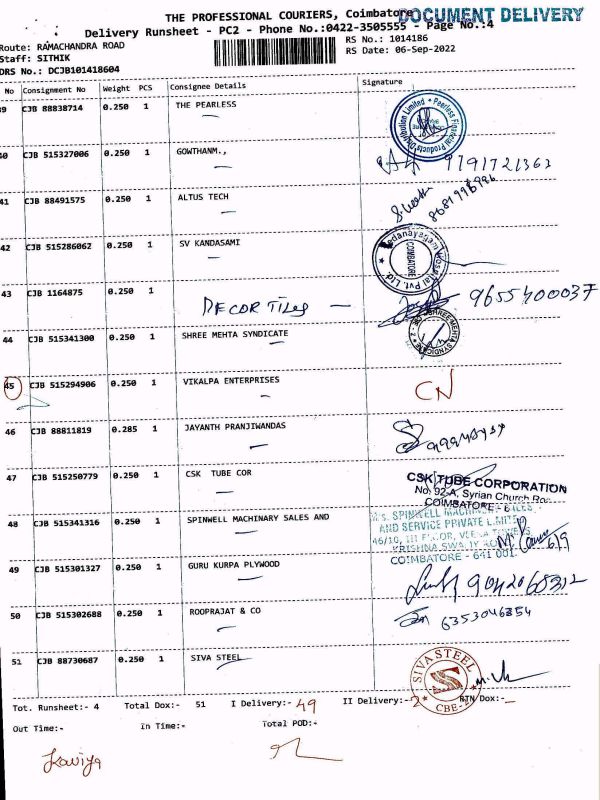 THE PROFESSIONAL COURIERS, Coimbatore
DOCUMENT DELIVERY
Delivery Runsheet - PC2 - Phone No.:0422-3505555 - Page No.:4
Route: RAMACHANDRA ROAD
RS No.: 1014186
Staff: SITHIK
RS Date: 06-Sep-2022
DRS No.: DCJB101418604
No Consignment No Weight PCS Consignee Details Signature
39 CJB 88838714 0.250 1 THE PEARLESS
Peerless Financial Products Distribution Limited
40 CJB 515327006 0.250 1 GOWTHANM., 9791721363
41 CJB 88491575 0.250 1 ALTUS TECH
42 CJB 515286062 0.250 1 SV KANDASAMI
Vedanayagam Hospital Pvt. Ltd.
COIMBATORE
43 CJB 1164875 0.250 1 DECOR TILES — 9655400037
44 CJB 515341300 0.250 1 SHREE MEHTA SYNDICATE
SHREE MEHTA SYNDICATE
45 CJB 515294906 0.250 1 VIKALPA ENTERPRISES CN
46 CJB 88811819 0.285 1 JAYANTH PRANJIWANDAS
47 CJB 515250779 0.250 1 CSK TUBE COR
CSK TUBE CORPORATION
No. 92-A, Syrian Church Roa
COIMBATORE -
48 CJB 515341316 0.250 1 SPINWELL MACHINARY SALES AND
M/s. SPINWELL MACHINERY SALES
AND SERVICE PRIVATE LIMITED
46/10, III FLOOR, VEENA TOWERS,
KRISHNA SWAMY ROAD
COIMBATORE - 641 001
6/9
49 CJB 515301327 0.250 1 GURU KURPA PLYWOOD
50 CJB 515302688 0.250 1 ROOPRAJAT & CO 6353046854
51 CJB 88730687 0.250 1 SIVA STEEL
SIVA STEEL
CBE-
Tot. Runsheet:- 4 Total Dox:- 51 I Delivery:- 49 II Delivery:- 2 NTN Dox:-
Out Time:- In Time:- Total POD:-
Kaviya